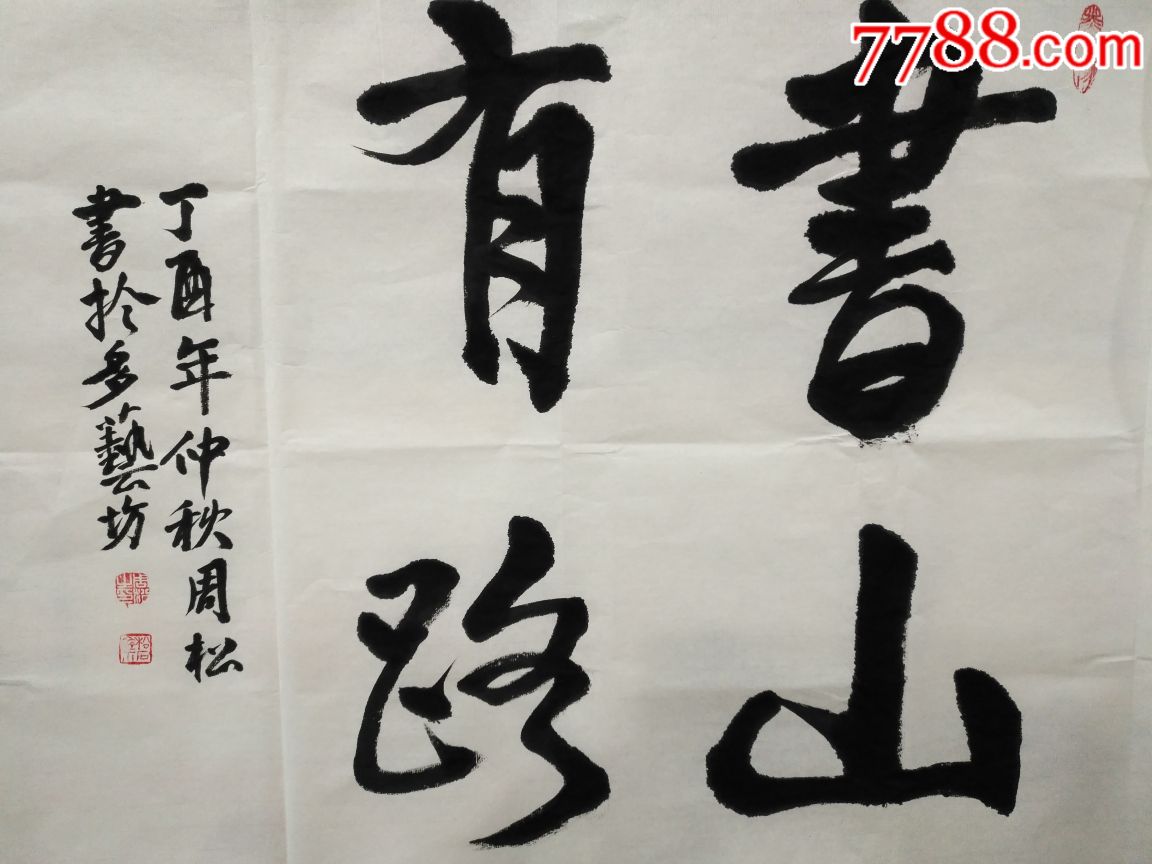 書山
有路
丁酉年仲秋周松
書於多藝坊
7788.com